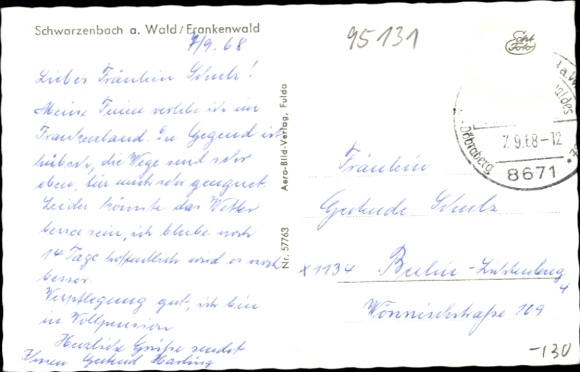 Schwarzenbach a. Wald/Frankenwald
7/9. 68
95131
Echt Foto
Liebes Fräulein Schulz!
Meine Ferien verlebe ich im
Frankenland. Die Gegend ist
hübsch, die Wege sind sehr
eben, für mich sehr geeignet
Leider könnte das Wetter
besser sein, ich bleibe noch
14 Tage hoffentlich wird es noch
besser.
Verpflegung gut, ich bin
in Vollpension
Herzliche Grüße sendet
Ihnen Gertrud
Aero-Bild-Verlag, Fulda
Nr. 57763
7.9.68-12
8671
Döbraberg
Fräulein
Gertrude Schulz
X 1134 Berlin-Lichtenberg
4
Wönnichstraße 109
-130